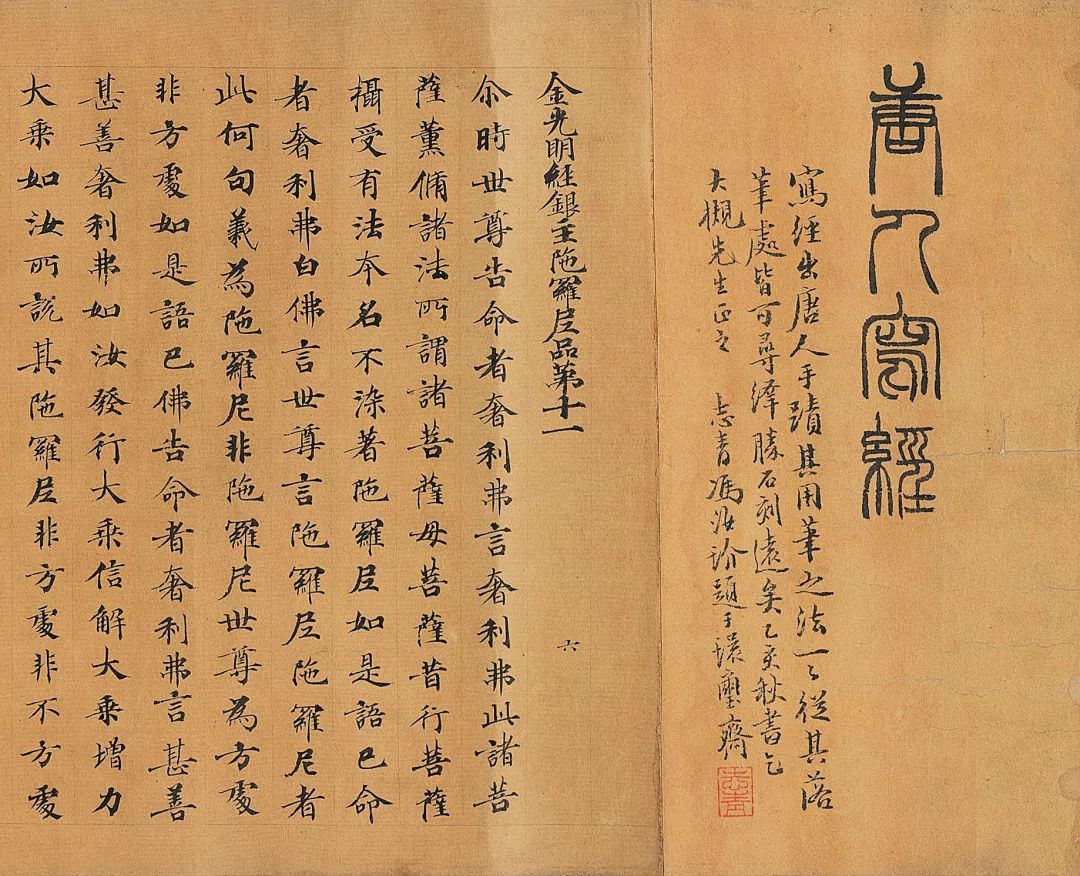 唐人寫經
寫經出唐人手蹟其用筆之法一々從其落
筆處皆可尋繹勝石刻遠矣乙亥秋書乞
大槻先生正之 志青馮汝玠題于環璽齋
志青
金光明經銀主陁羅尼品第十一
六
尒時世尊告命者奢利弗言奢利弗此諸菩
薩薰脩諸法所謂諸菩薩母菩薩昔行菩薩
攝受有法本名不染著陁羅尼如是語已命
者奢利弗白佛言世尊言陁羅尼陁羅尼者
此何句義為陁羅尼非陁羅尼世尊為方處
非方處如是語已佛告命者奢利弗言甚善
甚善奢利弗如汝發行大乘信解大乘增力
大乘如汝所說其陁羅尼非方處非不方處